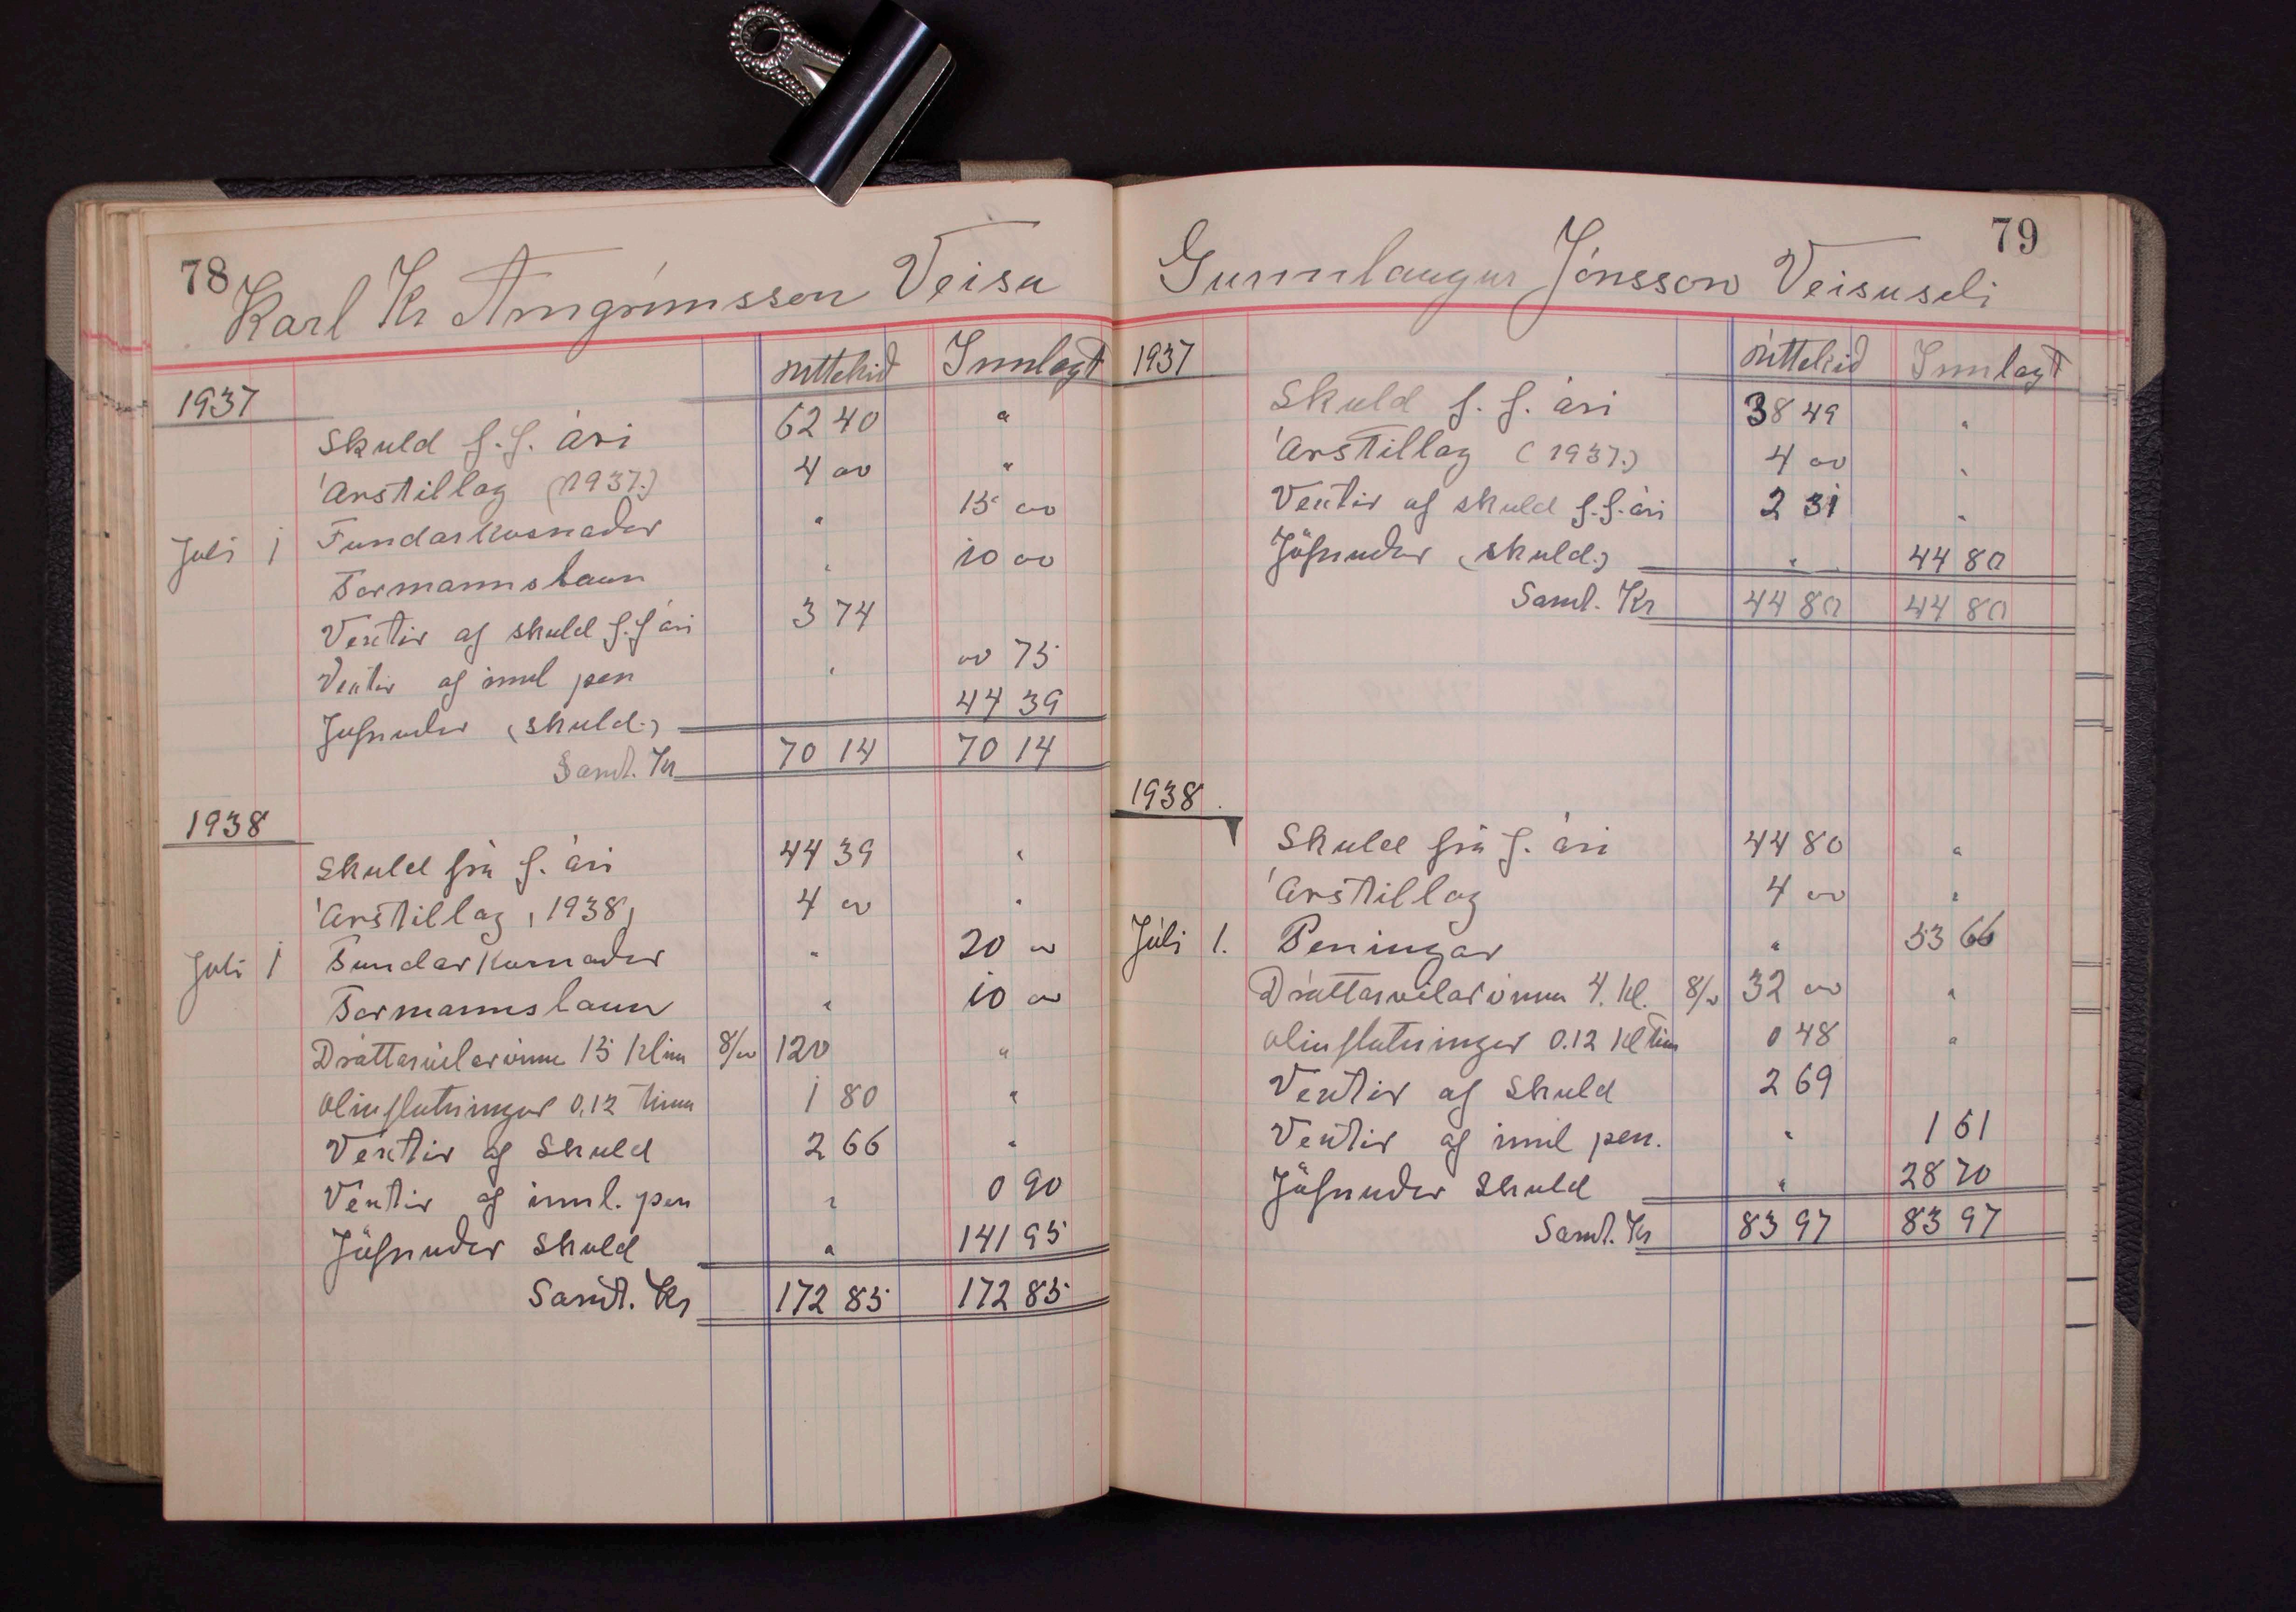 78
Karl Kr Arngrímsson Veisu
úttekið Innlagt
1937
Skuld f.f. ári 62 40 "
Árstillag (1937.) 4 00 "
Júlí 1 Fundarkosnaður " 15 00
Formannslaun " 10 00
Vextir af skuld f.f ári 3 74
Vextir af innl pen " 00 75
Jöfnuður (skuld.) 44 39
Samt. Kr 70 14 70 14
1938
Skuld frá f. ári 44 39 "
Árstillag (1938) 4 00 "
Júlí 1 Fundarkosnaður " 20 00
Formannslaun " 10 00
Dráttarvélavinna 15 klim 8/00 120 "
Olíuflutningur 0.12 tíman 1 80 "
Vextir af Skuld 2 66 "
Vextir af innl. pen " 0 90
Jöfnuður Skuld " 141 95
Samt. Kr 172 85 172 85
79
Gunnlaugur Jónsson Veisuseli
1937 úttekið Innlagt
Skuld f. f. ári 38 49 "
Árstillag (1937.) 4 00 "
Vextir af skuld f.f. ári 2 31 "
Jöfnuður (skuld.) " 44 80
Samt. Kr 44 80 44 80
1938
Skuld frá f. ári 44 80 "
Árstillag 4 00 "
Júlí 1. Peningar " 53 66
Dráttarvélavinna 4. kl. 8/00 32 00 "
Olíuflutningur 0.12 kl tím 0 48 "
Vextir af Skuld 2 69
Vextir af innl pen. " 1 61
Jöfnuður Skuld " 28 70
Samt. Kr 83 97 83 97